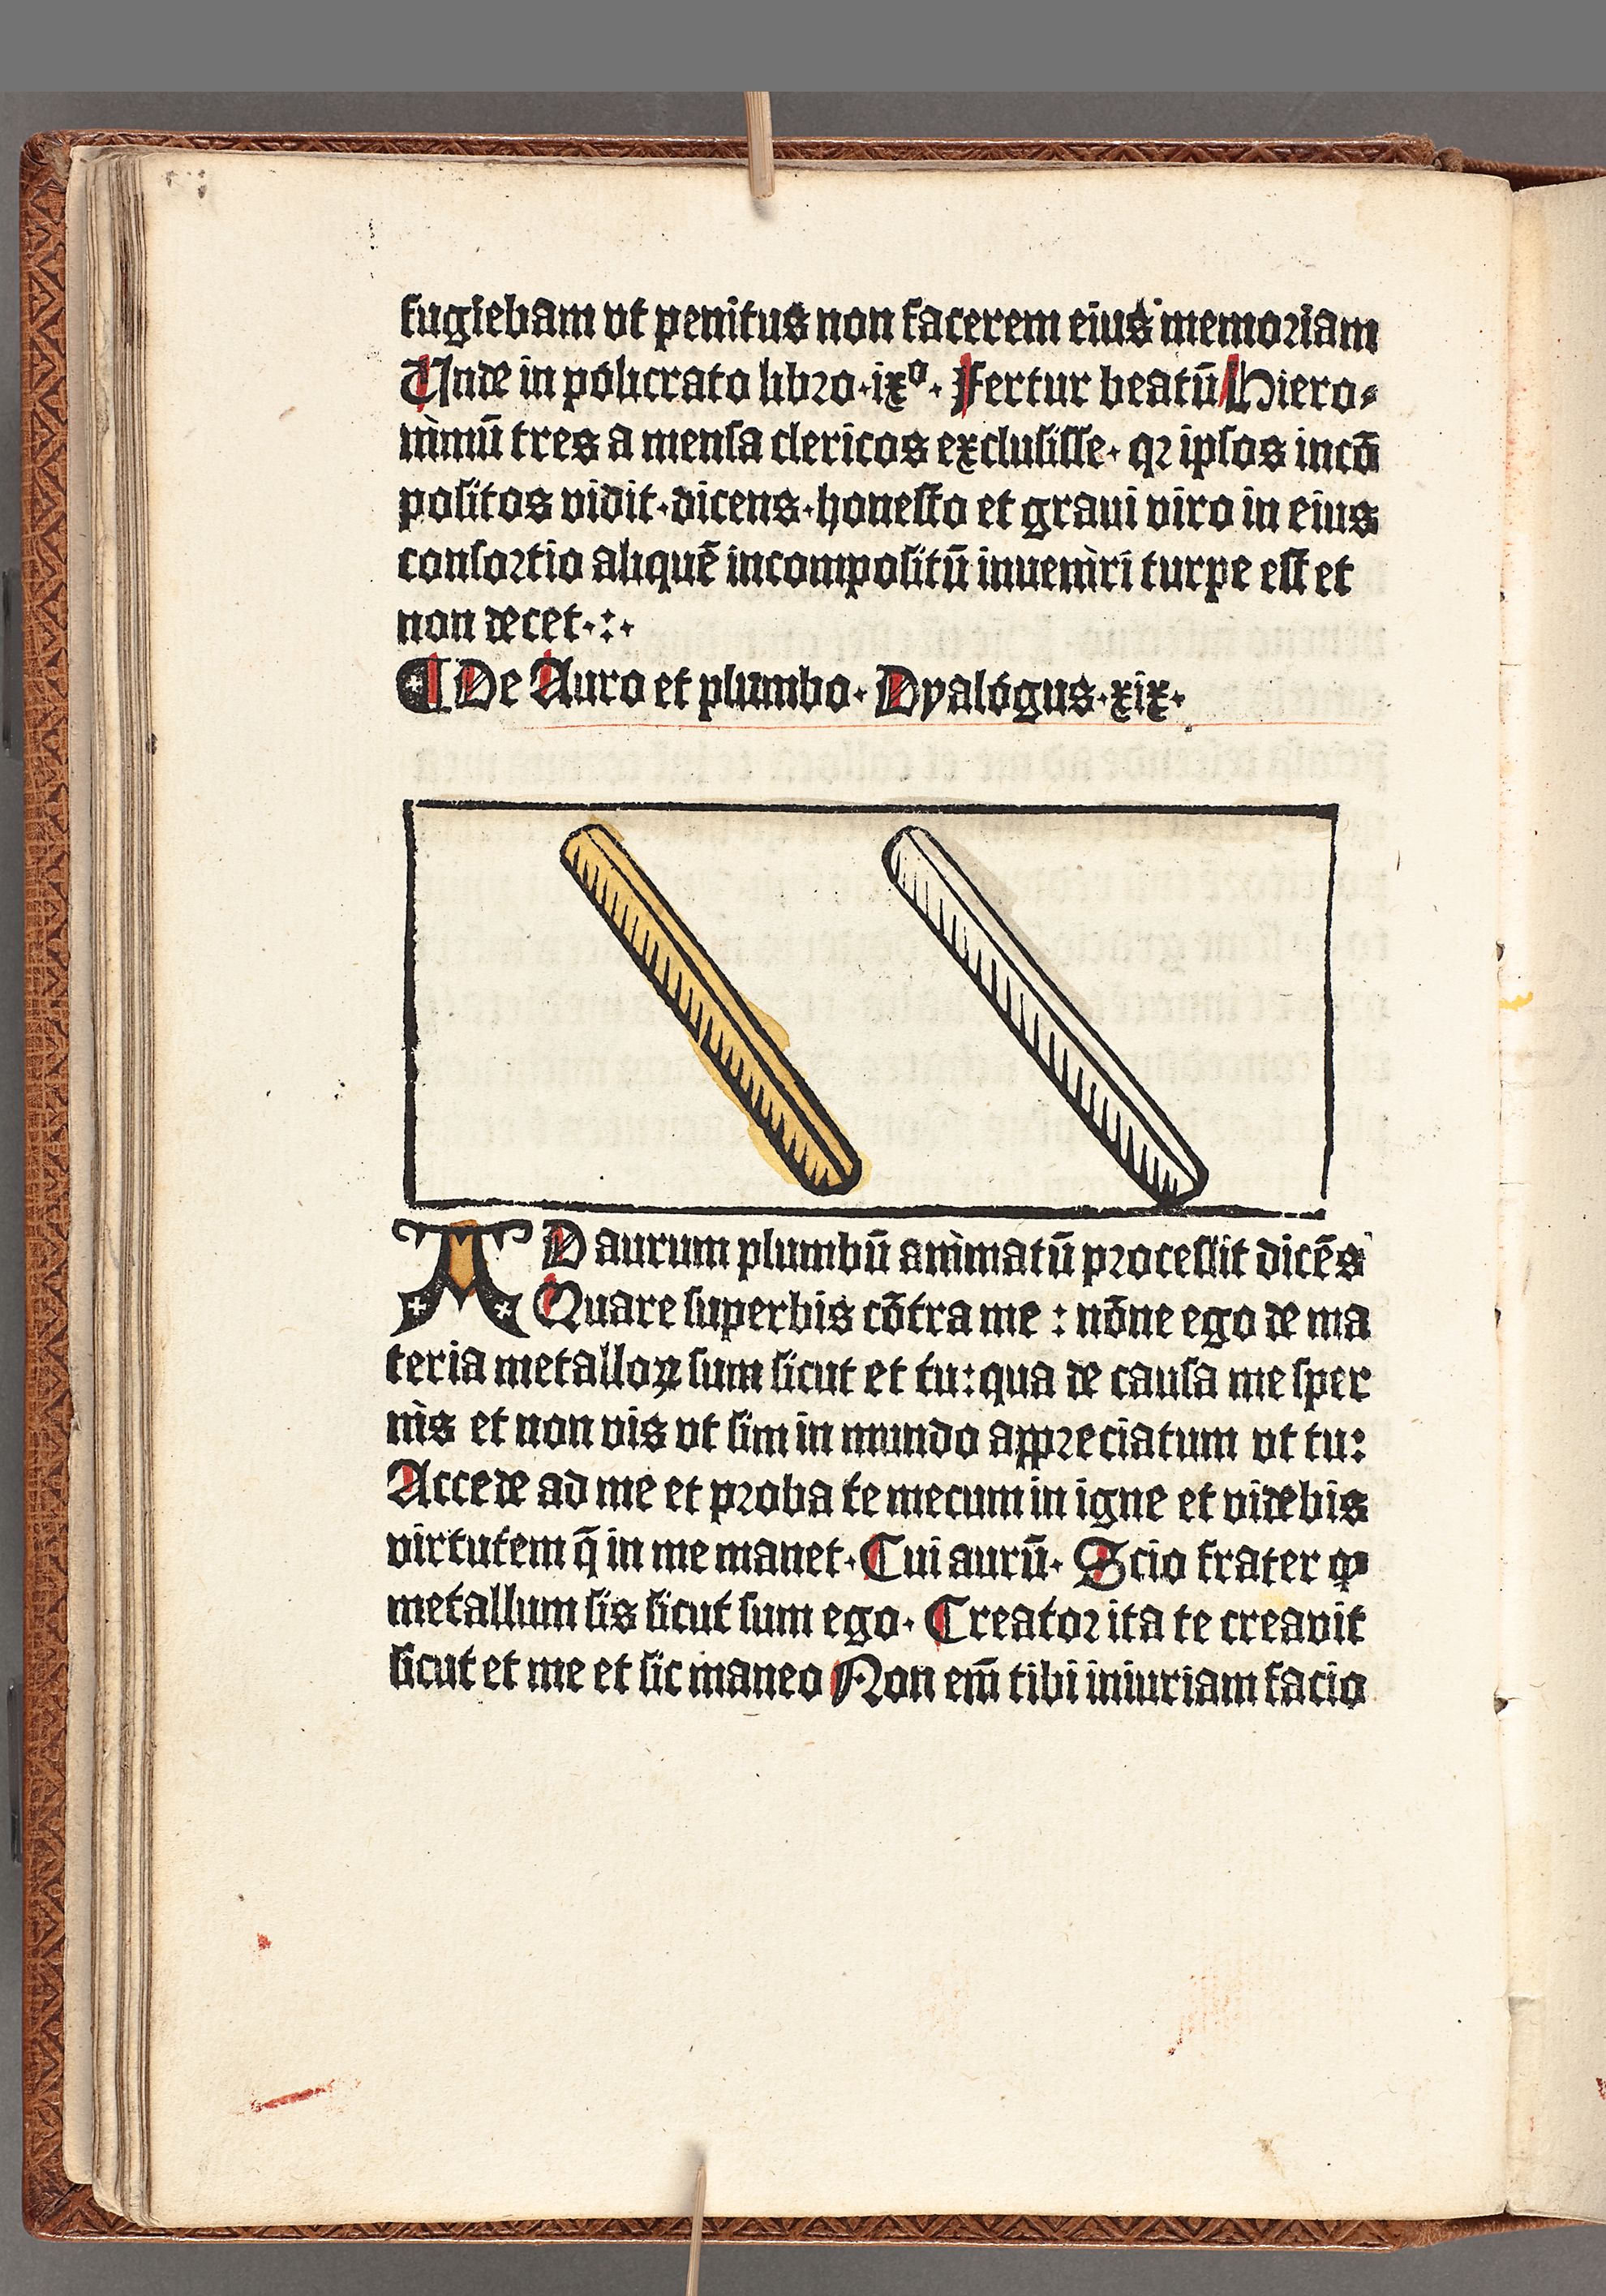 fugiebam vt penitus non facerem eius memoriam
Unde in policrato libro·ixº· Fertur beatū Hiero⸗
nimū tres a mensa clericos exclusisse· qꝛ ipsos incō
positos vidit·dicens·honesto et graui viro in eius
consortio aliquē incompositū inueniri turpe est et
non decet·:·
¶ De Auro et plumbo· Dyalogus·xix·
AD aurum plumbū animatū processit dicēs
Quare superbis cōtra me : nōne ego de ma
teria metalloꝝ sum sicut et tu: qua de causa me sper
nis et non vis vt sim in mundo appreciatum vt tu:
Accede ad me et proba te mecum in igne et videbis
virtutem q̄ in me manet· Cui aurū· Scio frater ꝙ
metallum sis sicut sum ego· Creator ita te creavit
sicut et me et sic maneo Non em̄ tibi iniuriam facio